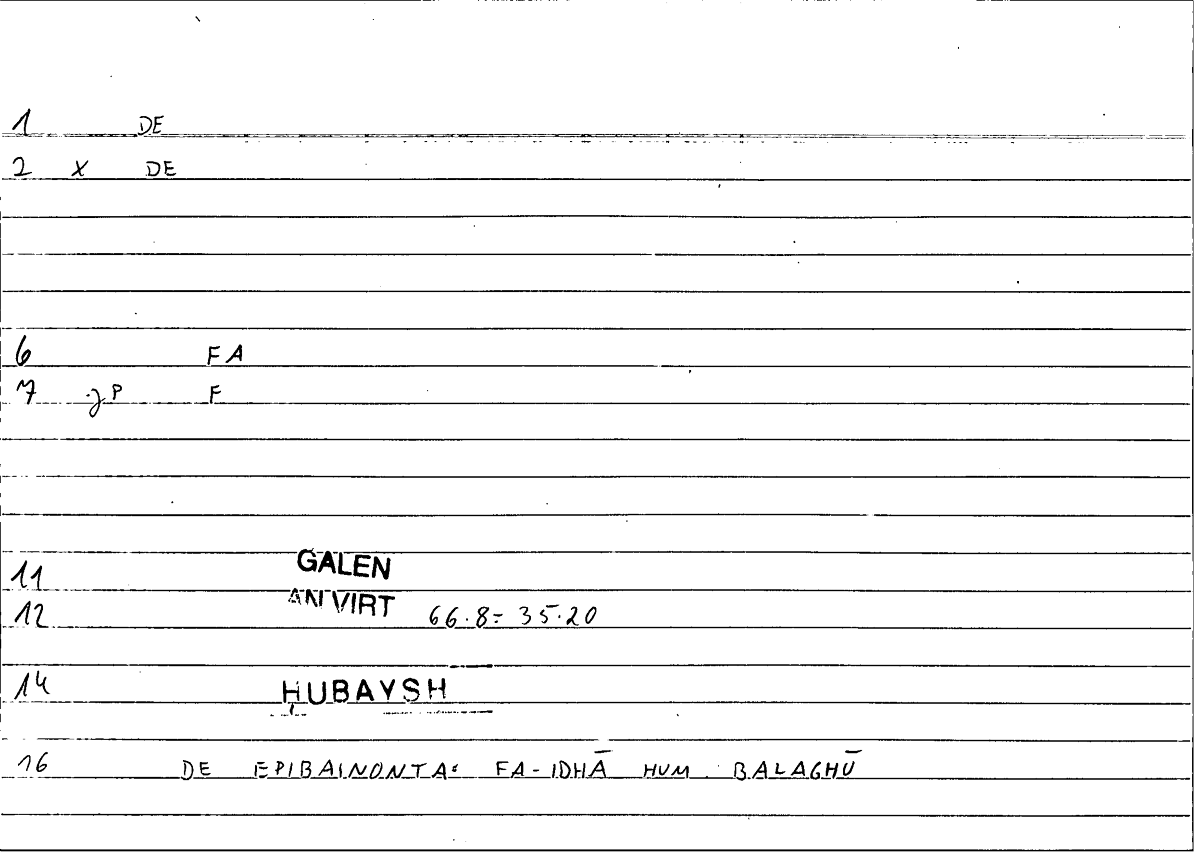 1 DE
2 X DE
6 FA
7 F
11 GALEN
12 AN VIRT 66.8 = 35.20
14 ḤUBAYSH
16 DE EPIBAINONTA: FA-IDHĀ HUM BALAGHŪ